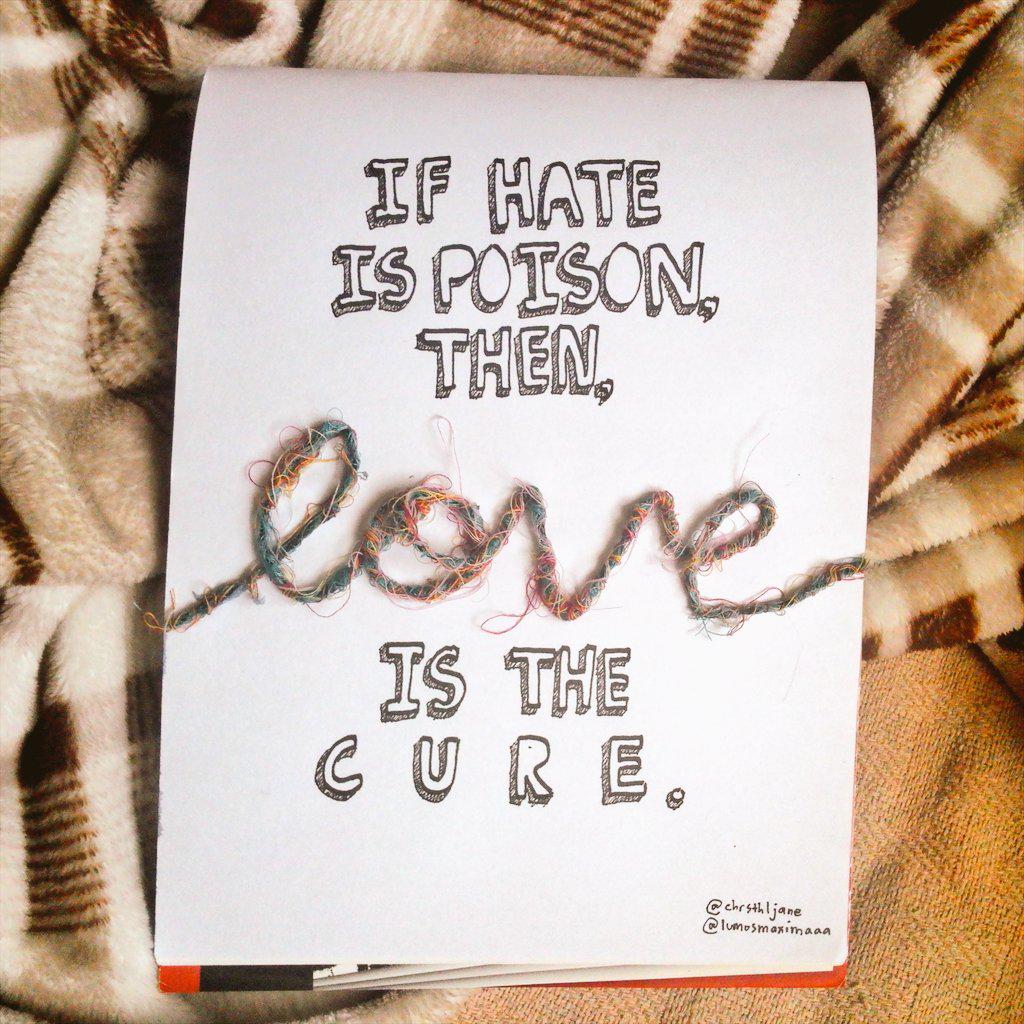 IF HATE
IS POISON,
THEN,
love
IS THE
CURE.
@chrsthljane
@lumosmaximaaa